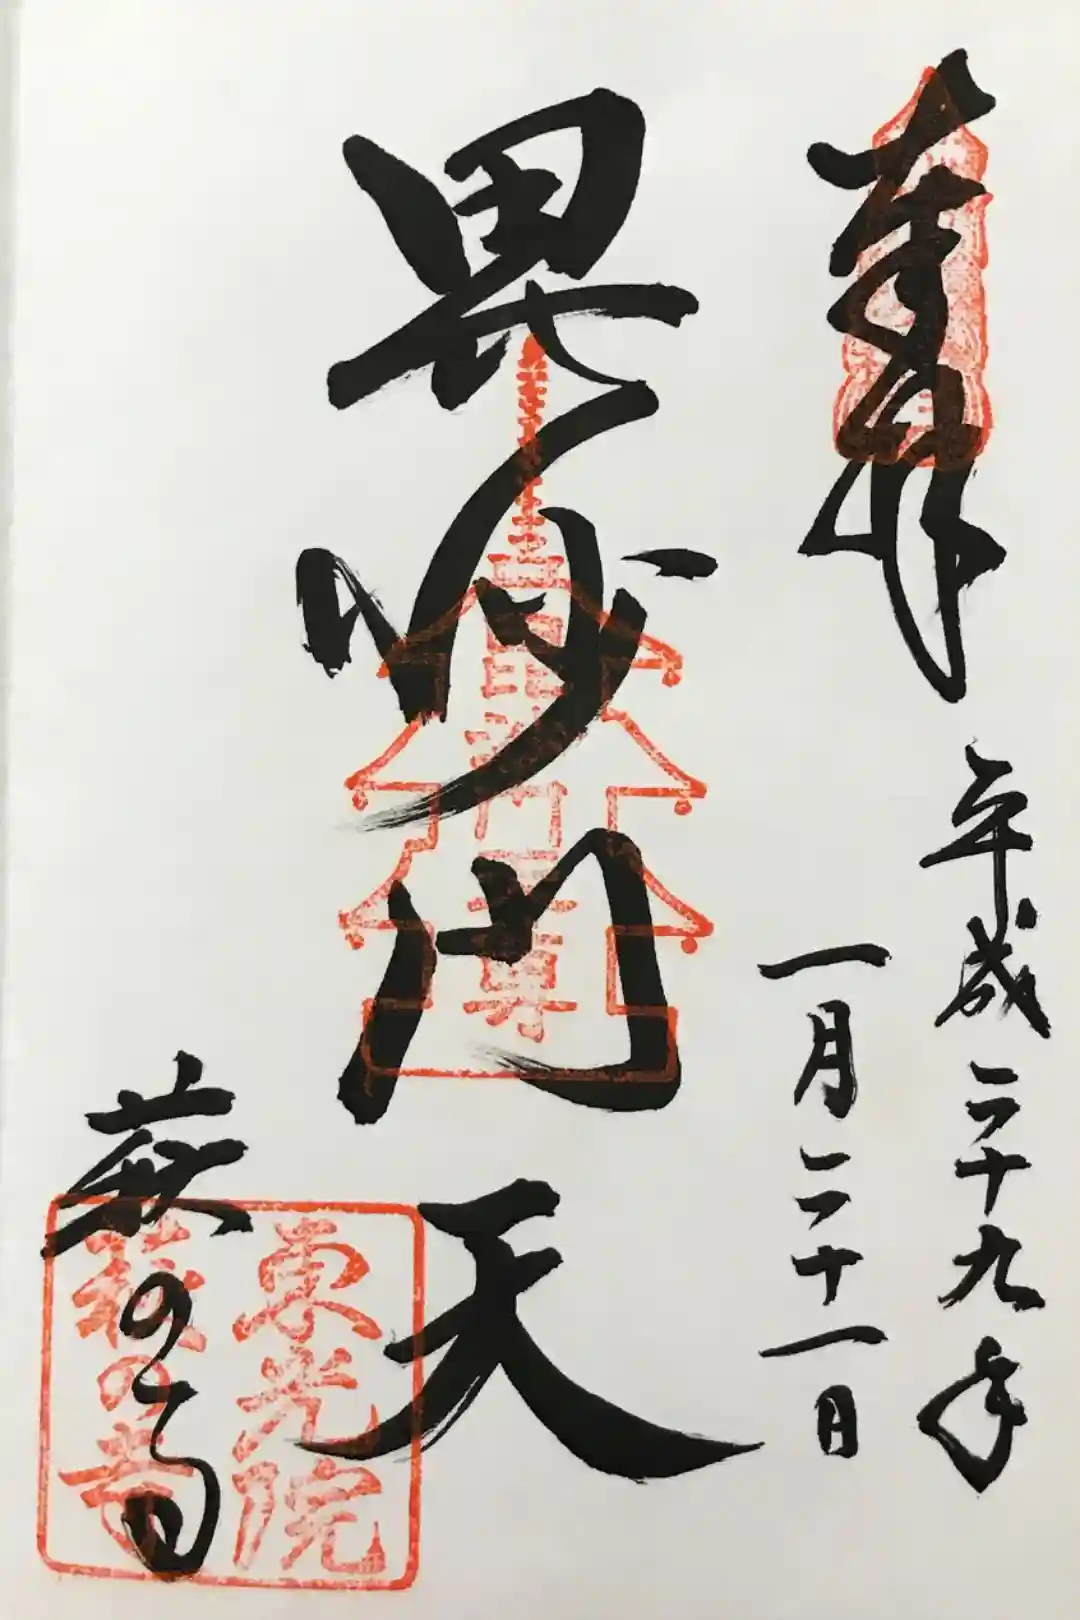 奉拝
平成二十九年
一月二十一日
毘沙門天
萩の寺
東光院
萩の寺